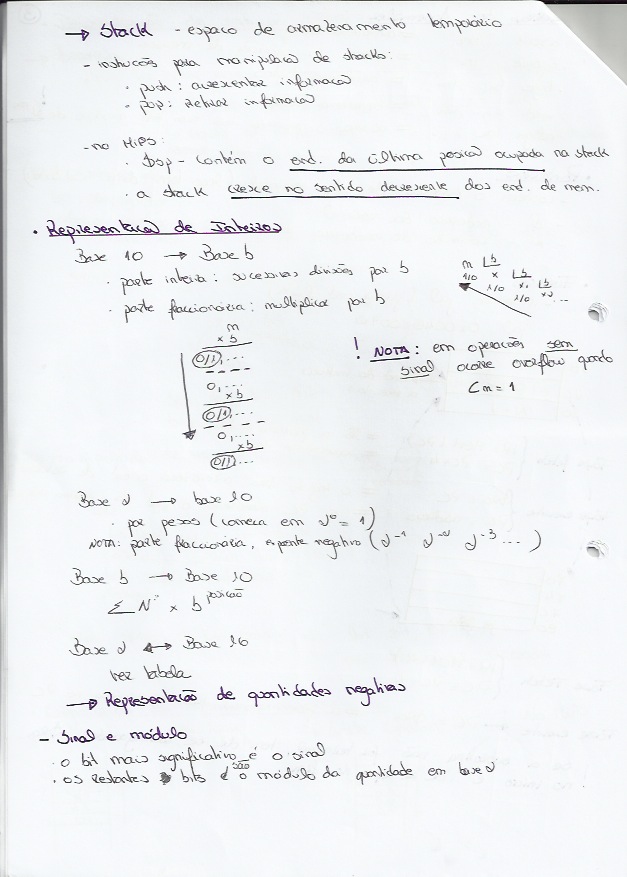 → Stack - espaço de armazenamento temporário
- instruções para manipulação de stacks:
· push: acrescentar informação
· pop: retirar informação
- no MIPS:
· $sp - contém o end. da última posição ocupada na stack
· a stack cresce no sentido decrescente dos end. de mem.
· Representação de Inteiros
Base 10 → Base b
· parte inteira: sucessivas divisões por b
· parte fraccionária: multiplicar por b
m
x b
0/1,...
0,...
x b
0/1,...
0,...
x b
0/1,...
m b
1/0 x b
1/0 x₁ b
1/0 x₂ ...
! NOTA: em operações sem
sinal, ocorre overflow quando
Cm = 1
Base 2 → base 10
· por pesos (começa em 2⁰ = 1)
NOTA: parte fraccionária, expoente negativo (2⁻¹ 2⁻² 2⁻³ ... )
Base b → Base 10
Σ Nº x b^posição
Base 2 ↔ Base 16
ver tabela
→ Representação de quantidades negativas
- Sinal e módulo
· o bit mais significativo é o sinal
· os restantes bits são o módulo da quantidade em base 2